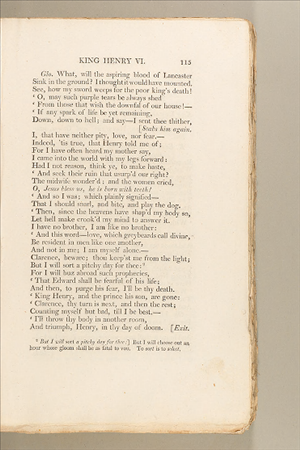 KING HENRY VI. 115
Glo. What, will the aspiring blood of Lancaster
Sink in the ground? I thought it would have mounted.
See, how my sword weeps for the poor king's death!
‘ O, may such purple tears be alway shed
‘ From those that wish the downfal of our house!—
‘ If any spark of life be yet remaining,
Down, down to hell; and say—I sent thee thither,
[Stabs him again.
I, that have neither pity, love, nor fear.—
Indeed, 'tis true, that Henry told me of;
For I have often heard my mother say,
I came into the world with my legs forward:
Had I not reason, think ye, to make haste,
‘ And seek their ruin that usurp'd our right?
The midwife wonder'd; and the women cried,
O, Jesus bless us, he is born with teeth!
‘ And so I was; which plainly signified—
That I should snarl, and bite, and play the dog.
‘ Then, since the heavens have shap'd my body so,
Let hell make crook'd my mind to answer it.
I have no brother, I am like no brother:
‘ And this word—love, which greybeards call divine,
Be resident in men like one another,
And not in me; I am myself alone.—
Clarence, beware; thou keep'st me from the light;
But I will sort a pitchy day for thee:⁹
For I will buz abroad such prophecies,
‘ That Edward shall be fearful of his life;
And then, to purge his fear, I'll be thy death.
‘ King Henry, and the prince his son, are gone:
‘ Clarence, thy turn is next, and then the rest;
Counting myself but bad, till I be best.—
‘ I'll throw thy body in another room,
And triumph, Henry, in thy day of doom. [Exit.
⁹ But I will sort a pitchy day for thee:] But I will choose out an
hour whose gloom shall be as fatal to you. To sort is to select.